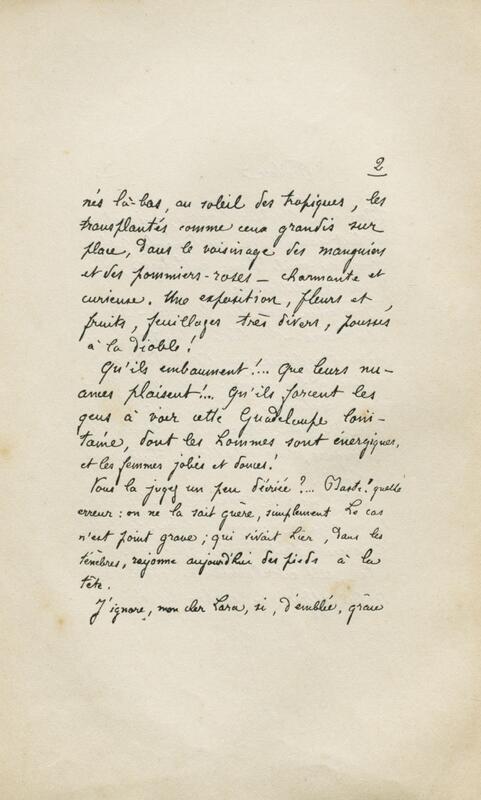 2
nés là-bas, au soleil des tropiques, les
transplantés comme ceux grandis sur
place, dans le voisinage des manguiers
et des pommiers-roses — charmante et
curieuse. Une exposition, fleurs et
fruits, feuillages très divers, poussés
à la diable !
Qu'ils embaument !... Que leurs nu-
ances plaisent !... Qu'ils forcent les
gens à voir cette Guadeloupe loin-
taine, dont les hommes sont énergiques,
et les femmes jolies et douces !
Vous la jugez un peu décriée ?... Baste ! quelle
erreur : on ne la sait guère, simplement. Le cas
n'est point grave ; qui vivait hier, dans les
ténèbres, rayonne aujourd'hui des pieds à la
tête.
J'ignore, mon cher Lara, si, d'emblée, grâce